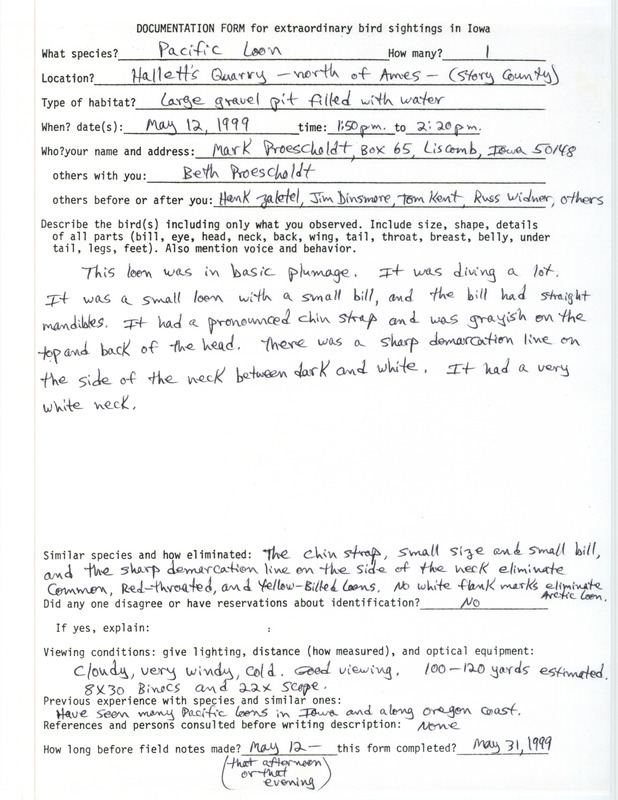 DOCUMENTATION FORM for extraordinary bird sightings in Iowa
What species? Pacific Loon How many? 1
Location? Hallett's Quarry - north of Ames - (Story County)
Type of habitat? Large gravel pit filled with water
When? date(s): May 12, 1999 time: 1:50 p.m. to 2:20 p.m.
Who?your name and address: Mark Proescholdt, Box 65, Liscomb, Iowa 50148
others with you: Beth Proescholdt
others before or after you: Hank Zaletel, Jim Dinsmore, Tom Kent, Russ Widner, others
Describe the bird(s) including only what you observed. Include size, shape, details
of all parts (bill, eye, head, neck, back, wing, tail, throat, breast, belly, under
tail, legs, feet). Also mention voice and behavior.
This loon was in basic plumage. It was diving a lot.
It was a small loon with a small bill, and the bill had straight
mandibles. It had a pronounced chin strap and was grayish on the
top and back of the head. There was a sharp demarcation line on
the side of the neck between dark and white. It had a very
white neck.
Similar species and how eliminated: The chin strap, small size and small bill,
and the sharp demarcation line on the side of the neck eliminate
Common, Red-throated, and Yellow-Billed Loons. No white flank marks eliminate
Arctic Loon.
Did any one disagree or have reservations about identification? No
If yes, explain:
Viewing conditions: give lighting, distance (how measured), and optical equipment:
Cloudy, very windy, cold. Good viewing. 100-120 yards estimated.
8X30 Binocs and 22x scope.
Previous experience with species and similar ones:
Have seen many Pacific Loons in Iowa and along Oregon coast.
References and persons consulted before writing description: None
How long before field notes made? May 12 - this form completed? May 31, 1999
(that afternoon
or that
evening)